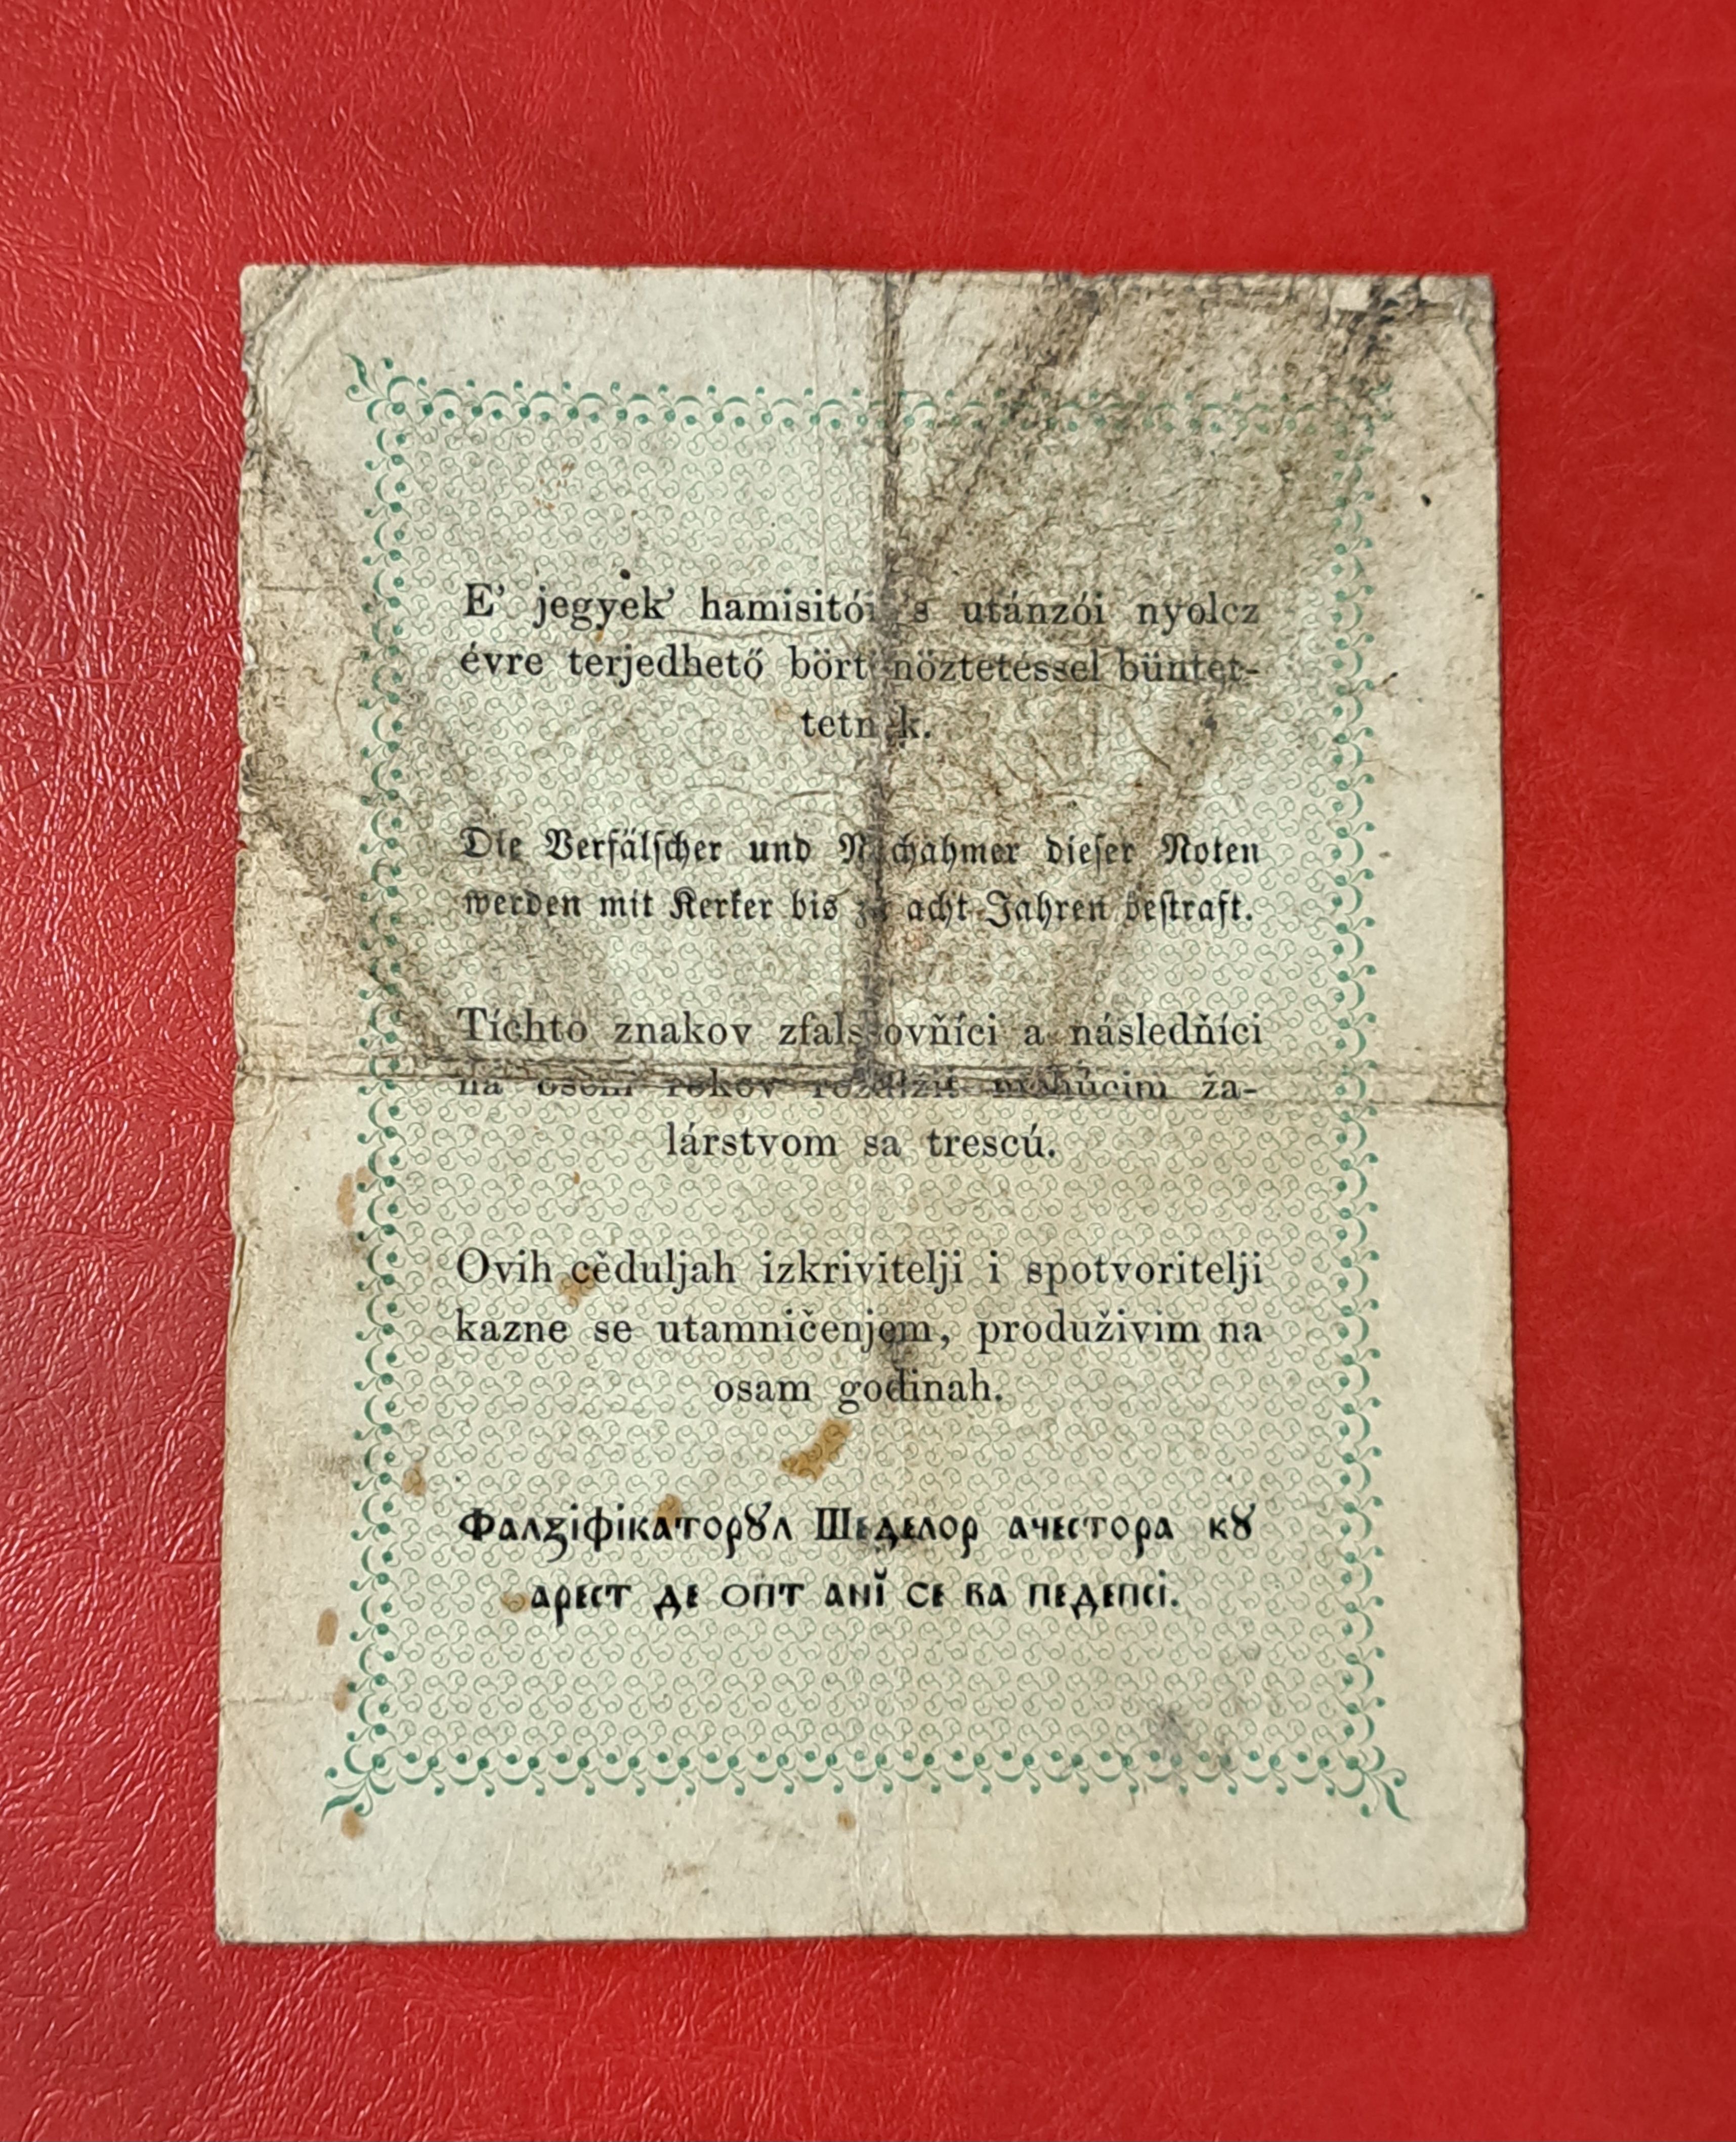 E’ jegyek’ hamisitói ’s utánzói nyolcz
évre terjedhető börtönöztetéssel büntet-
tetnek.
Die Verfälscher und Nachahmer dieser Noten
werden mit Kerker bis zu acht Jahren bestraft.
Tíchto znakov zfalšovňíci a následňíci
na osem rokov mohúcim ža-
lárstvom sa trescú.
Ovih cěduljah izkrivitelji i spotvoritelji
kazne se utamničenjem, produživim na
osam godinah.
Фалзіфікаторꙋл Шеделор ачестора кꙋ
арест де опт анĭ се ва педепсі.